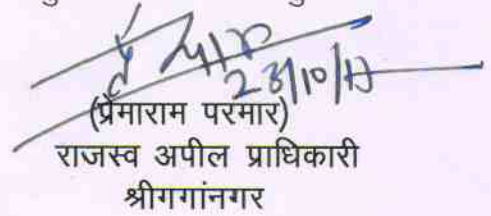 23/10/17
(प्रेमाराम परमार)
राजस्व अपील प्राधिकारी
श्रीगगांनगर